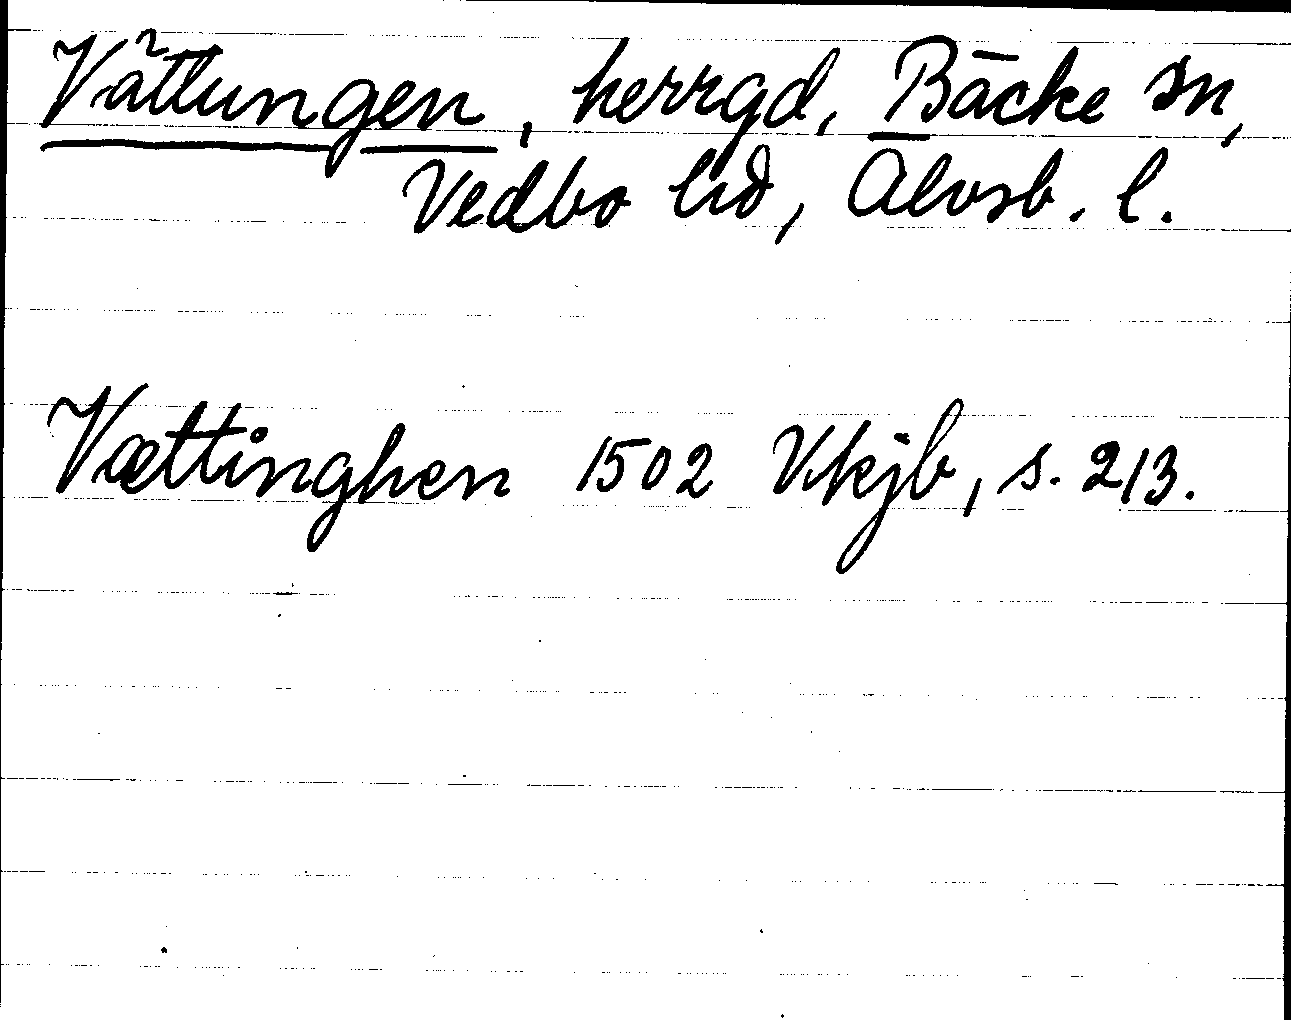 Vättungen, herrgd, Bäcke sn,
Vedbo hd, Älvsb. l.
Vættinghen 1502 Vkjb, s. 213.